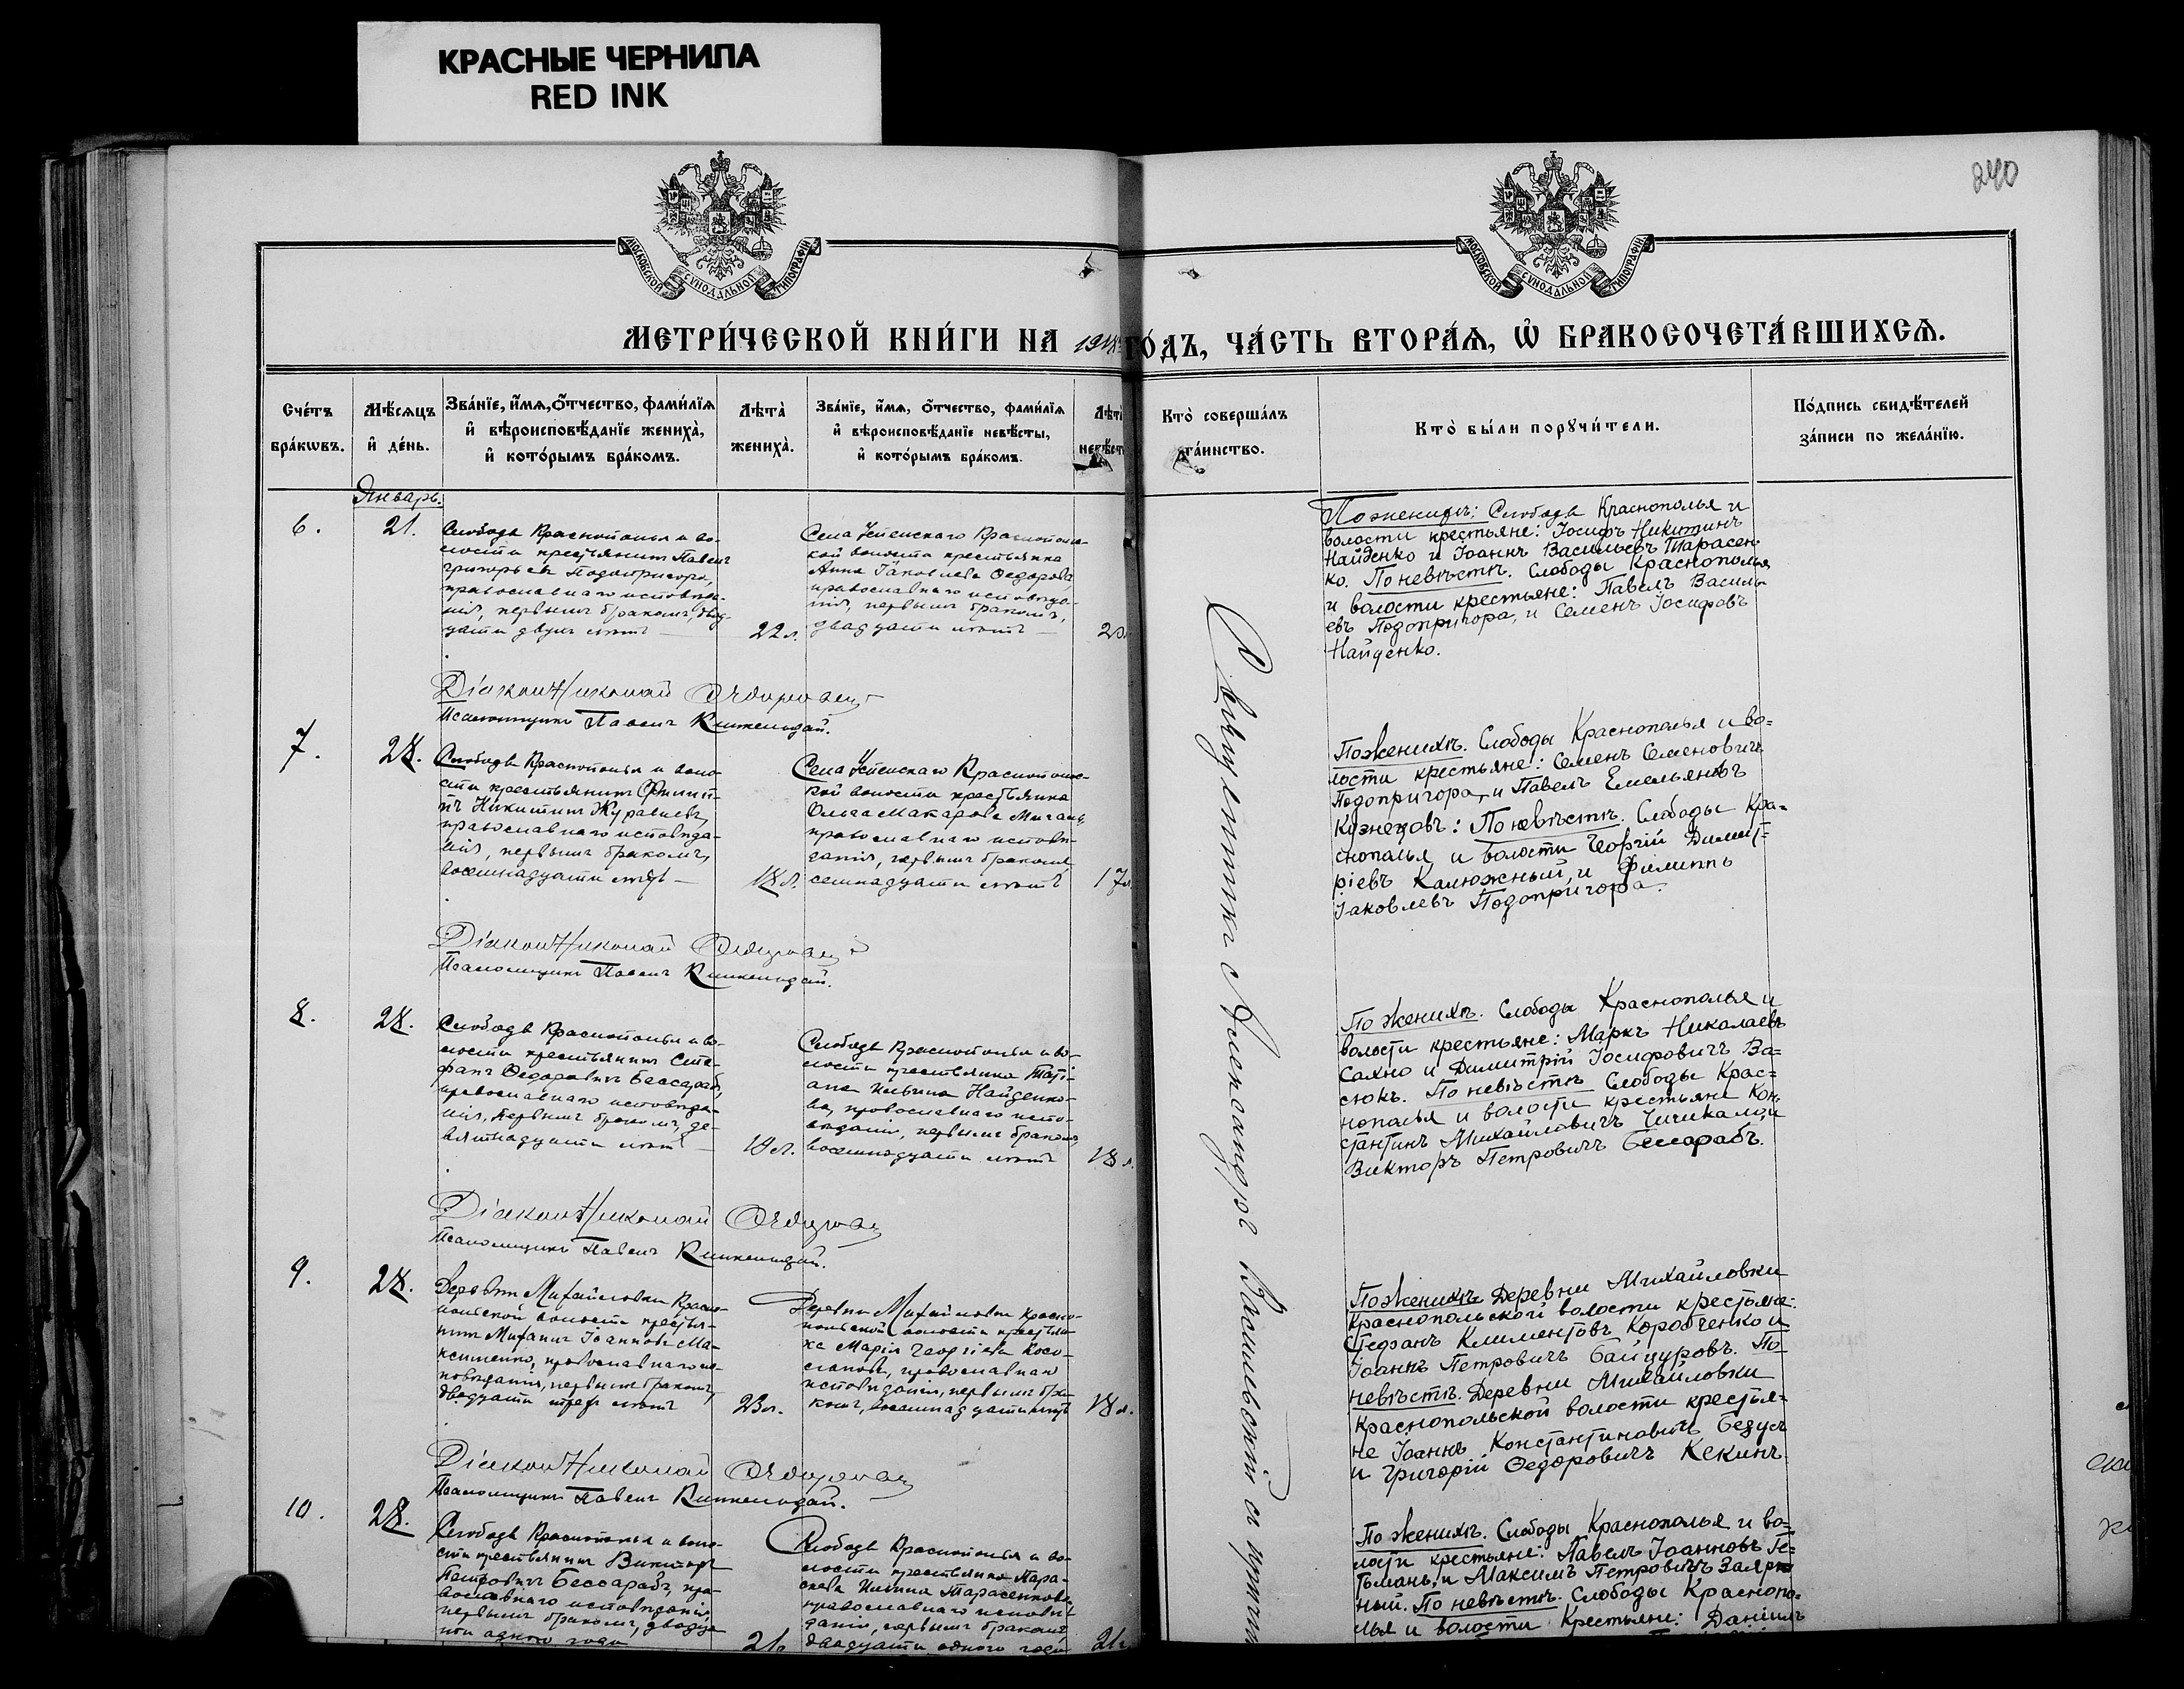 КРАСНЫЕ ЧЕРНИЛА
RED INK
240
МОСКОВСКОЙ СУНОДАЛЬНОЙ ТИПОГРАФІИ
МОСКОВСКОЙ СУНОДАЛЬНОЙ ТИПОГРАФІИ
МЕТРИ́ЧЕСКОЙ КНИ́ГИ НА ГО́ДЪ, ЧА́СТЬ ВТОРА́Ѧ, Ѡ҆ БРАКОСОЧЕТА́ВШИХСѦ.
Сче́тъ бра́кѡвъ.
Мѣ́сѧцъ и҆ де́нь.
Зва́нїе, и҆́мѧ, ѻ҆́тчество, фами́лїѧ
и҆ вѣроисповѣ́данїе жениха̀,
и҆ кото́рымъ бра́комъ.
Лѣта̀ жениха̀.
Зва́нїе, и҆́мѧ, ѻ҆́тчество, фами́лїѧ
и҆ вѣроисповѣ́данїе невѣ́сты,
и҆ кото́рымъ бра́комъ.
Лѣта̀
Кто̀ соверша́лъ
та́инство.
Кто̀ бы́ли порꙋчи́тели.
По́дпись свидѣ́телей
за́писи по жела́нїю.
Январь.
6.
21.
Слободы Краснополья и во-
лости крестьянинъ Павелъ
Григорьевъ Подопригора,
православнаго исповѣда-
нія, первымъ бракомъ, двад-
цати двухъ лѣтъ
22 л.
Села Успенскаго Краснополь-
ской волости крестьянка
Анна Іаковлева Ѳедорова,
православнаго исповѣда-
нія, первымъ бракомъ,
двадцати лѣтъ
20
Діаконъ Николай
Псаломщикъ Павелъ
По женихѣ: Слободы Краснополья и
волости крестьяне: Іосифъ Никитинъ
Найденко и Іоаннъ Васильевъ Тарасен-
ко. По невѣстѣ. Слободы Краснополья
и волости крестьяне: Павелъ Василь-
евъ Подопригора, и Семенъ Іосифовъ
Найденко.
7.
28.
Слободы Краснополья и воло-
сти крестьянинъ Филип-
пъ Никитинъ Журавлевъ,
православнаго исповѣда-
нія, первымъ бракомъ,
восемнадцати лѣтъ
18 л.
Села Успенскаго Краснополь-
ской волости крестьянка
Ольга Макарова
православнаго исповѣ-
данія, первымъ бракомъ,
семнадцати лѣтъ
17 л.
Діаконъ Николай
Псаломщикъ Павелъ
По женихѣ. Слободы Краснополья и во=
лости крестьяне: Семенъ Семеновичъ
Подопригора, и Павелъ Емельяновъ
Кузнецовъ: По невѣстѣ. Слободы Кра=
снополья и волости Георгій Димит=
ріевъ Калюжный, и Филиппъ
Іаковлевъ Подопригора.
8.
28.
Слободы Краснополья и во-
лости крестьянинъ Сте-
фанъ Ѳедоровичъ Бессарабъ,
православнаго исповѣда-
нія, первымъ бракомъ, де-
вятнадцати лѣтъ
19 л.
Слободы Краснополья и во-
лости крестьянка Тати-
ана Ильина Найденко-
ва, православнаго испо-
вѣданія, первымъ бракомъ,
восемнадцати лѣтъ
18 л.
Діаконъ Николай
Псаломщикъ Павелъ
По женихѣ. Слободы Краснополья и
волости крестьяне: Маркъ Николаевъ
Сахно и Димитрій Іосифовичъ Ва=
сюкъ. По невѣстѣ Слободы Крас=
нополья и волости крестьяне Кон
стантинъ Михайловичъ Чичикало, и
Викторъ Петровичъ Бессарабъ.
9.
28.
Деревни Михайловки Красно-
польской волости крестья-
нинъ Михаилъ Іоанновъ Ма-
ксименко, православнаго ис-
повѣданія, первымъ бракомъ,
двадцати трехъ лѣтъ
23 л.
Деревни Михайловки Красно-
польской волости крестьян-
ка Марія Георгіева
православнаго
исповѣданія, первымъ бра-
комъ, восемнадцати лѣтъ
18 л.
Діаконъ Николай
Псаломщикъ Павелъ
По женихѣ Деревни Михайловки
Краснопольской волости крестьяне:
Стефанъ Климентовъ Коробченко и
Іоаннъ Петровичъ Байцуровъ. По
невѣстѣ. Деревни Михайловки
Краснопольской волости крестья=
не Іоаннъ Константиновичъ Бедусъ
и Григорій Ѳедоровичъ Кекинъ.
10.
28.
Слободы Краснополья и воло-
сти крестьянинъ Викторъ
Петровичъ Бессарабъ, пра-
вославнаго исповѣданія,
первымъ бракомъ, двадца-
ти одного года
21
Слободы Краснополья и во-
лости крестьянка Пара-
скева Ильина Тарасенкова,
православнаго исповѣ-
данія, первымъ бракомъ,
двадцати одного года
21
По женихѣ. Слободы Краснополья и во=
лости крестьяне: Павелъ Іоанновъ Ге=
тьманъ, и Максимъ Петровичъ Заярн
ный. По невѣстѣ. Слободы Краснопо=
лья и волости Крестьяне: Даніилъ
Священникъ Александръ Васильевскій